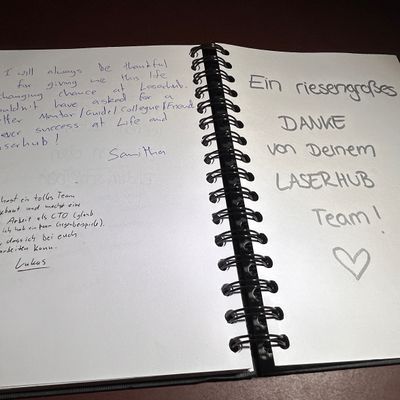 I will always be thankful
for giving me this life
changing chance at Laserhub.
couldn't have asked for a
etter Mentor/Guide/Collegue/Friend.
ever success at Life and
aserhub!
Samitha
hast ein tolles Team
gebaut und machst eine
Arbeit als CTO (glaub
ich hab ein paar Gegenbeispiele).
, dass ich bei euch
arbeiten kann.
Lukas
Ein riesengroßes
DANKE
von Deinem
LASERHUB
Team!